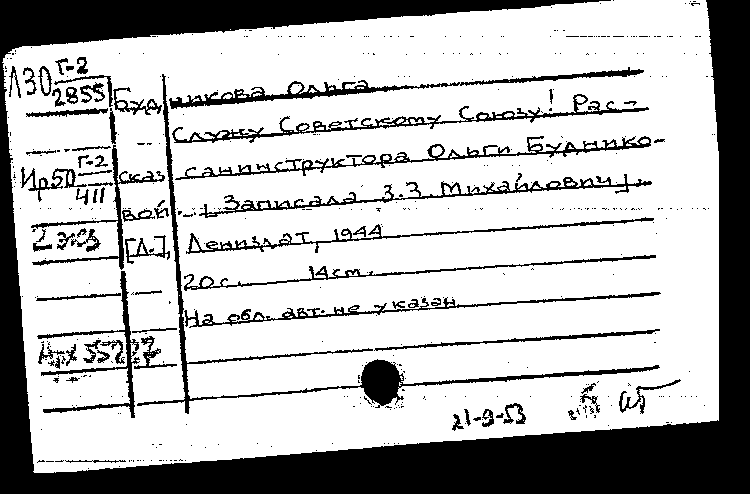 Л30 Г-2
2855
Будникова Ольга
Служу Советскому Союзу! Рас-
Ир50 Г-2
411
сказ санинструктора Ольги Буднико-
вой. [Записала З.З. Михайлович].
2 экз
[Л.], Лениздат, 1944
20 с. 14 см.
На обл. авт. не указан
Арх 55227
21-9-53